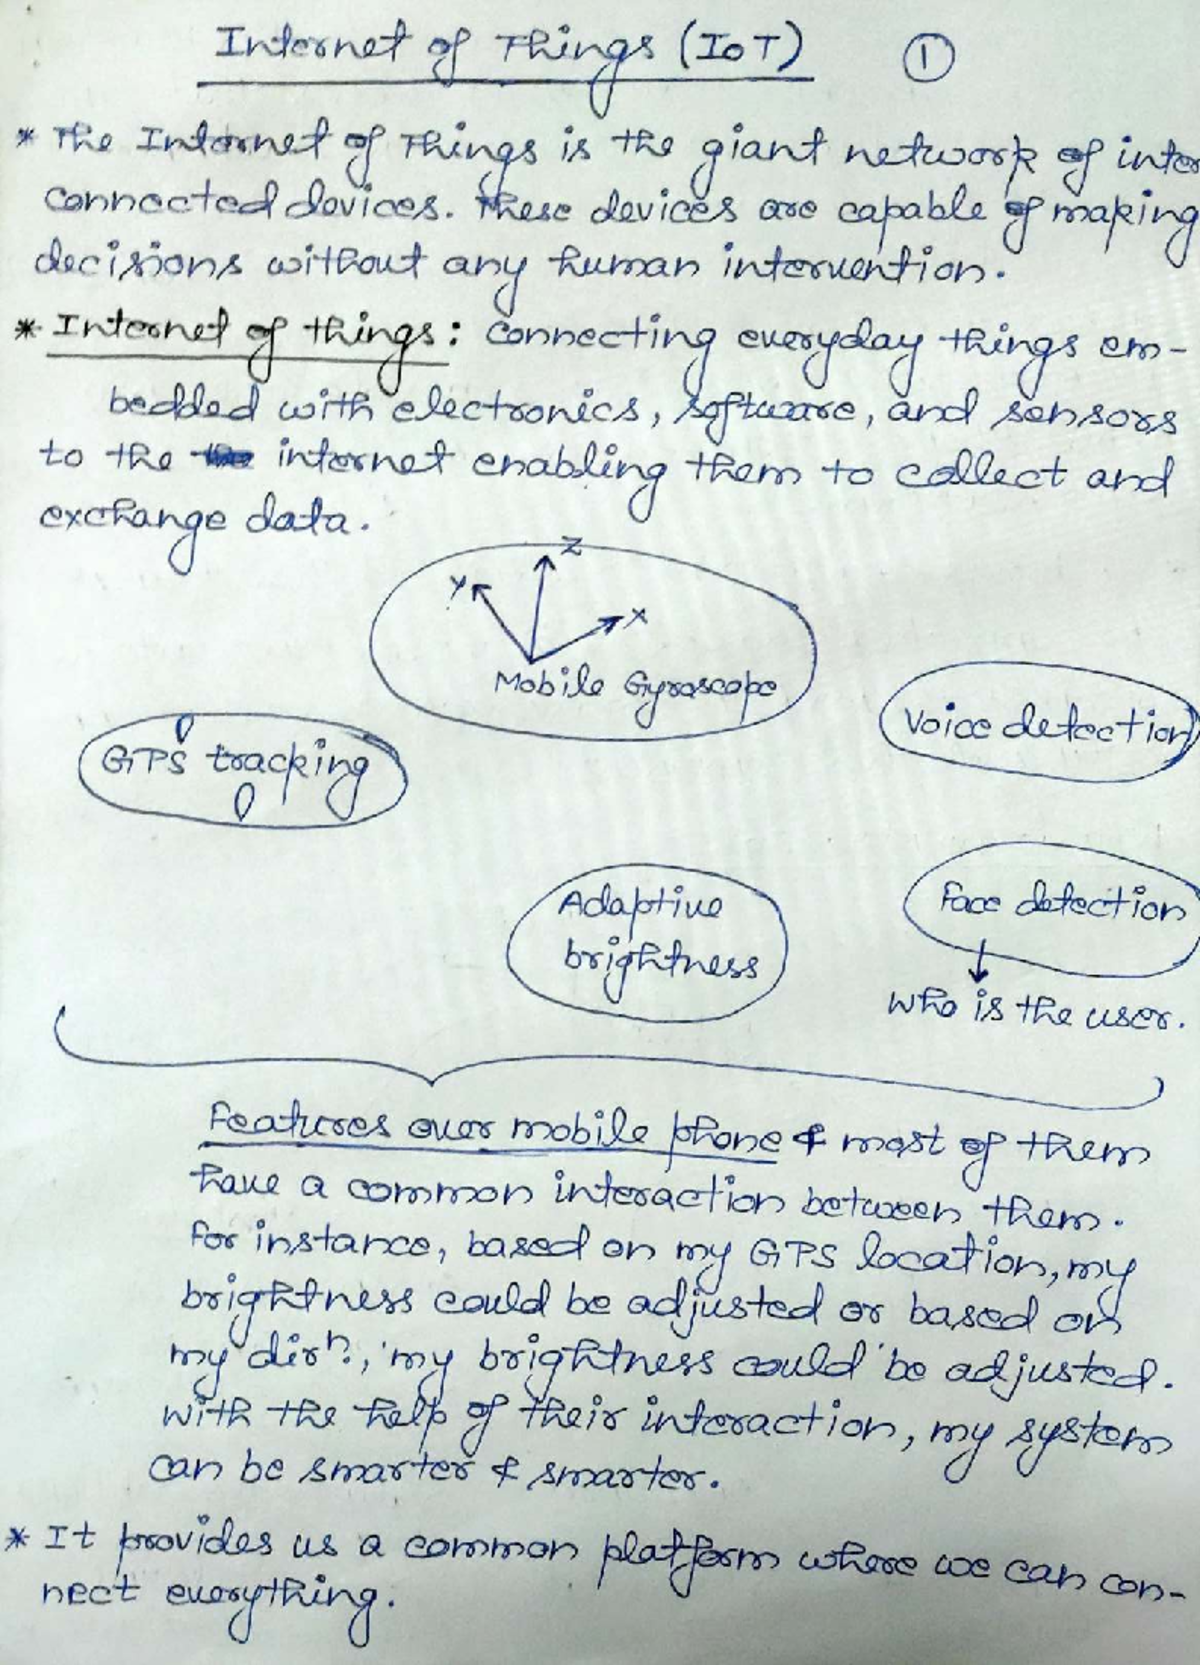 Internet of Things (IoT) 1
* The Internet of Things is the giant network of inter
connected devices. These devices are capable of making
decisions without any human intervention.
* Internet of things: Connecting everyday things em-
bedded with electronics, software, and sensors
to the internet enabling them to collect and
exchange data.
Z
Y
X
Mobile Gyroscope
Voice detection
GPS tracking
Adaptive
brightness
Face detection
Who is the user.
Features over mobile phone & most of them
have a common interaction between them.
For instance, based on my GPS location, my
brightness could be adjusted or based on
my dirn., my brightness could be adjusted.
With the help of their interaction, my system
can be smarter & smarter.
* It provides us a common platform where we can con-
nect everything.